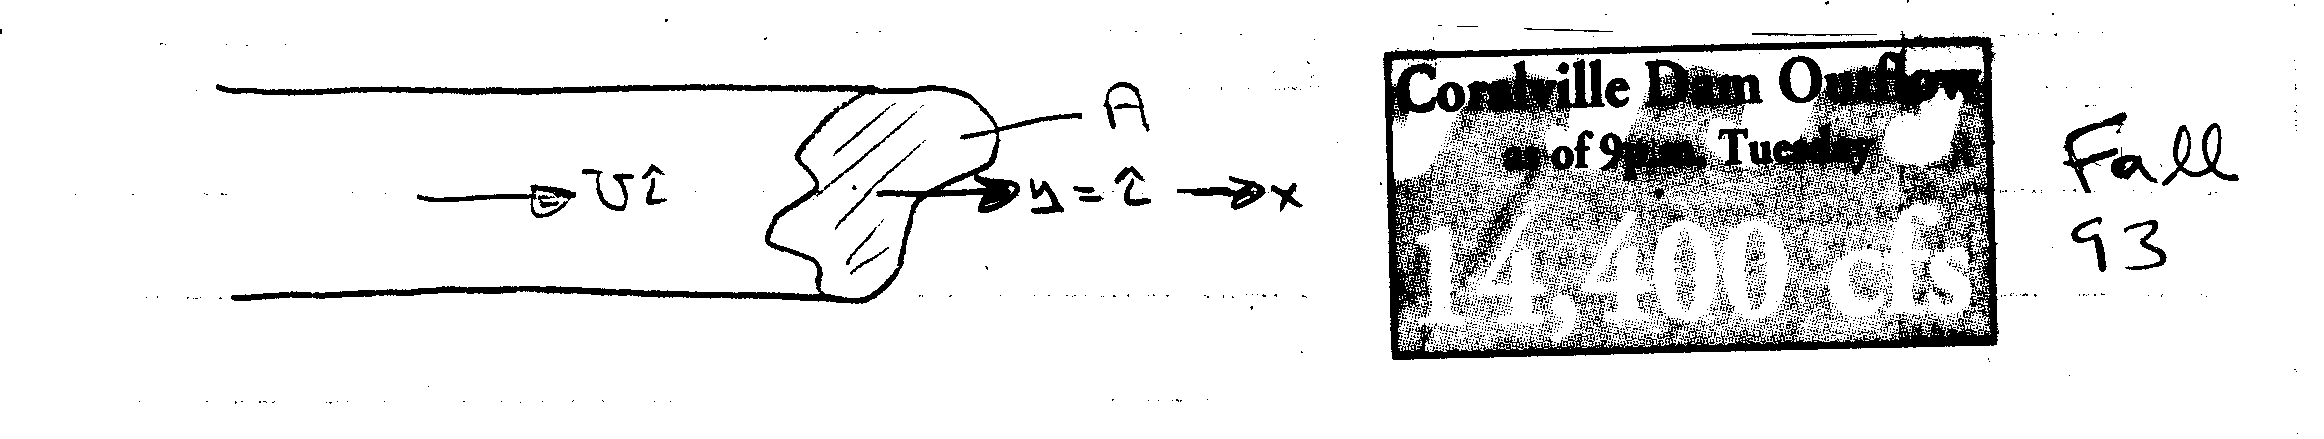 A
Uî
n = î → x
Coralville Dam Outflow
as of 9p.m. Tuesday
14,400 cfs
Fall
93